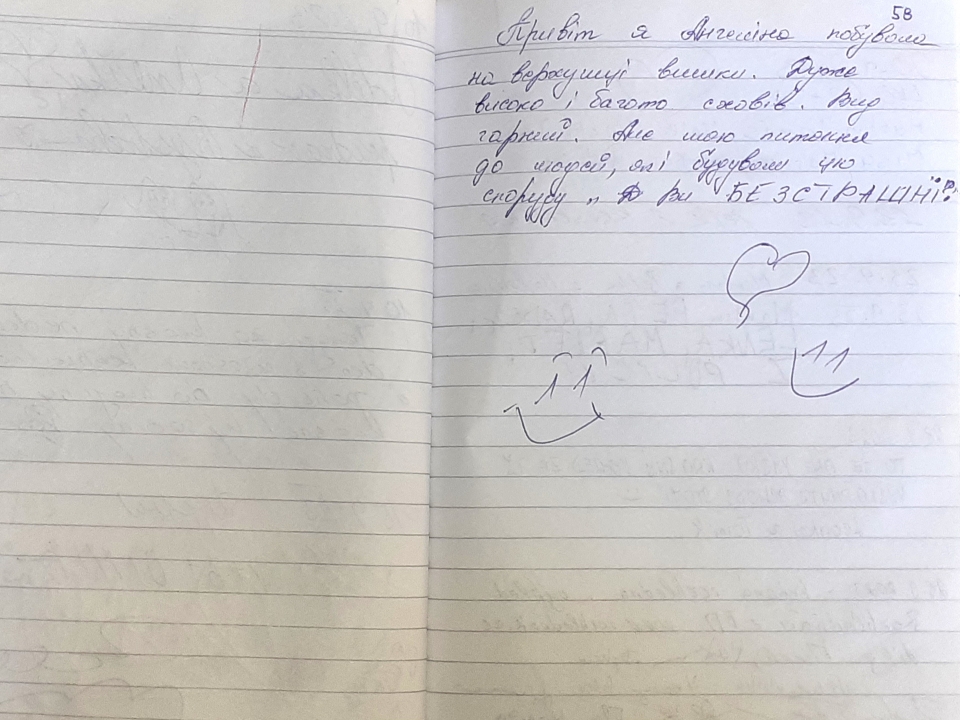 58
Привіт я Ангеліна побувала
на верхушці вишки. Дуже
високо і багато сходів. Вид
гарний. Але маю питання
до людей, які будували цю
споруду „ Ви БЕЗСТРАШНІ?"